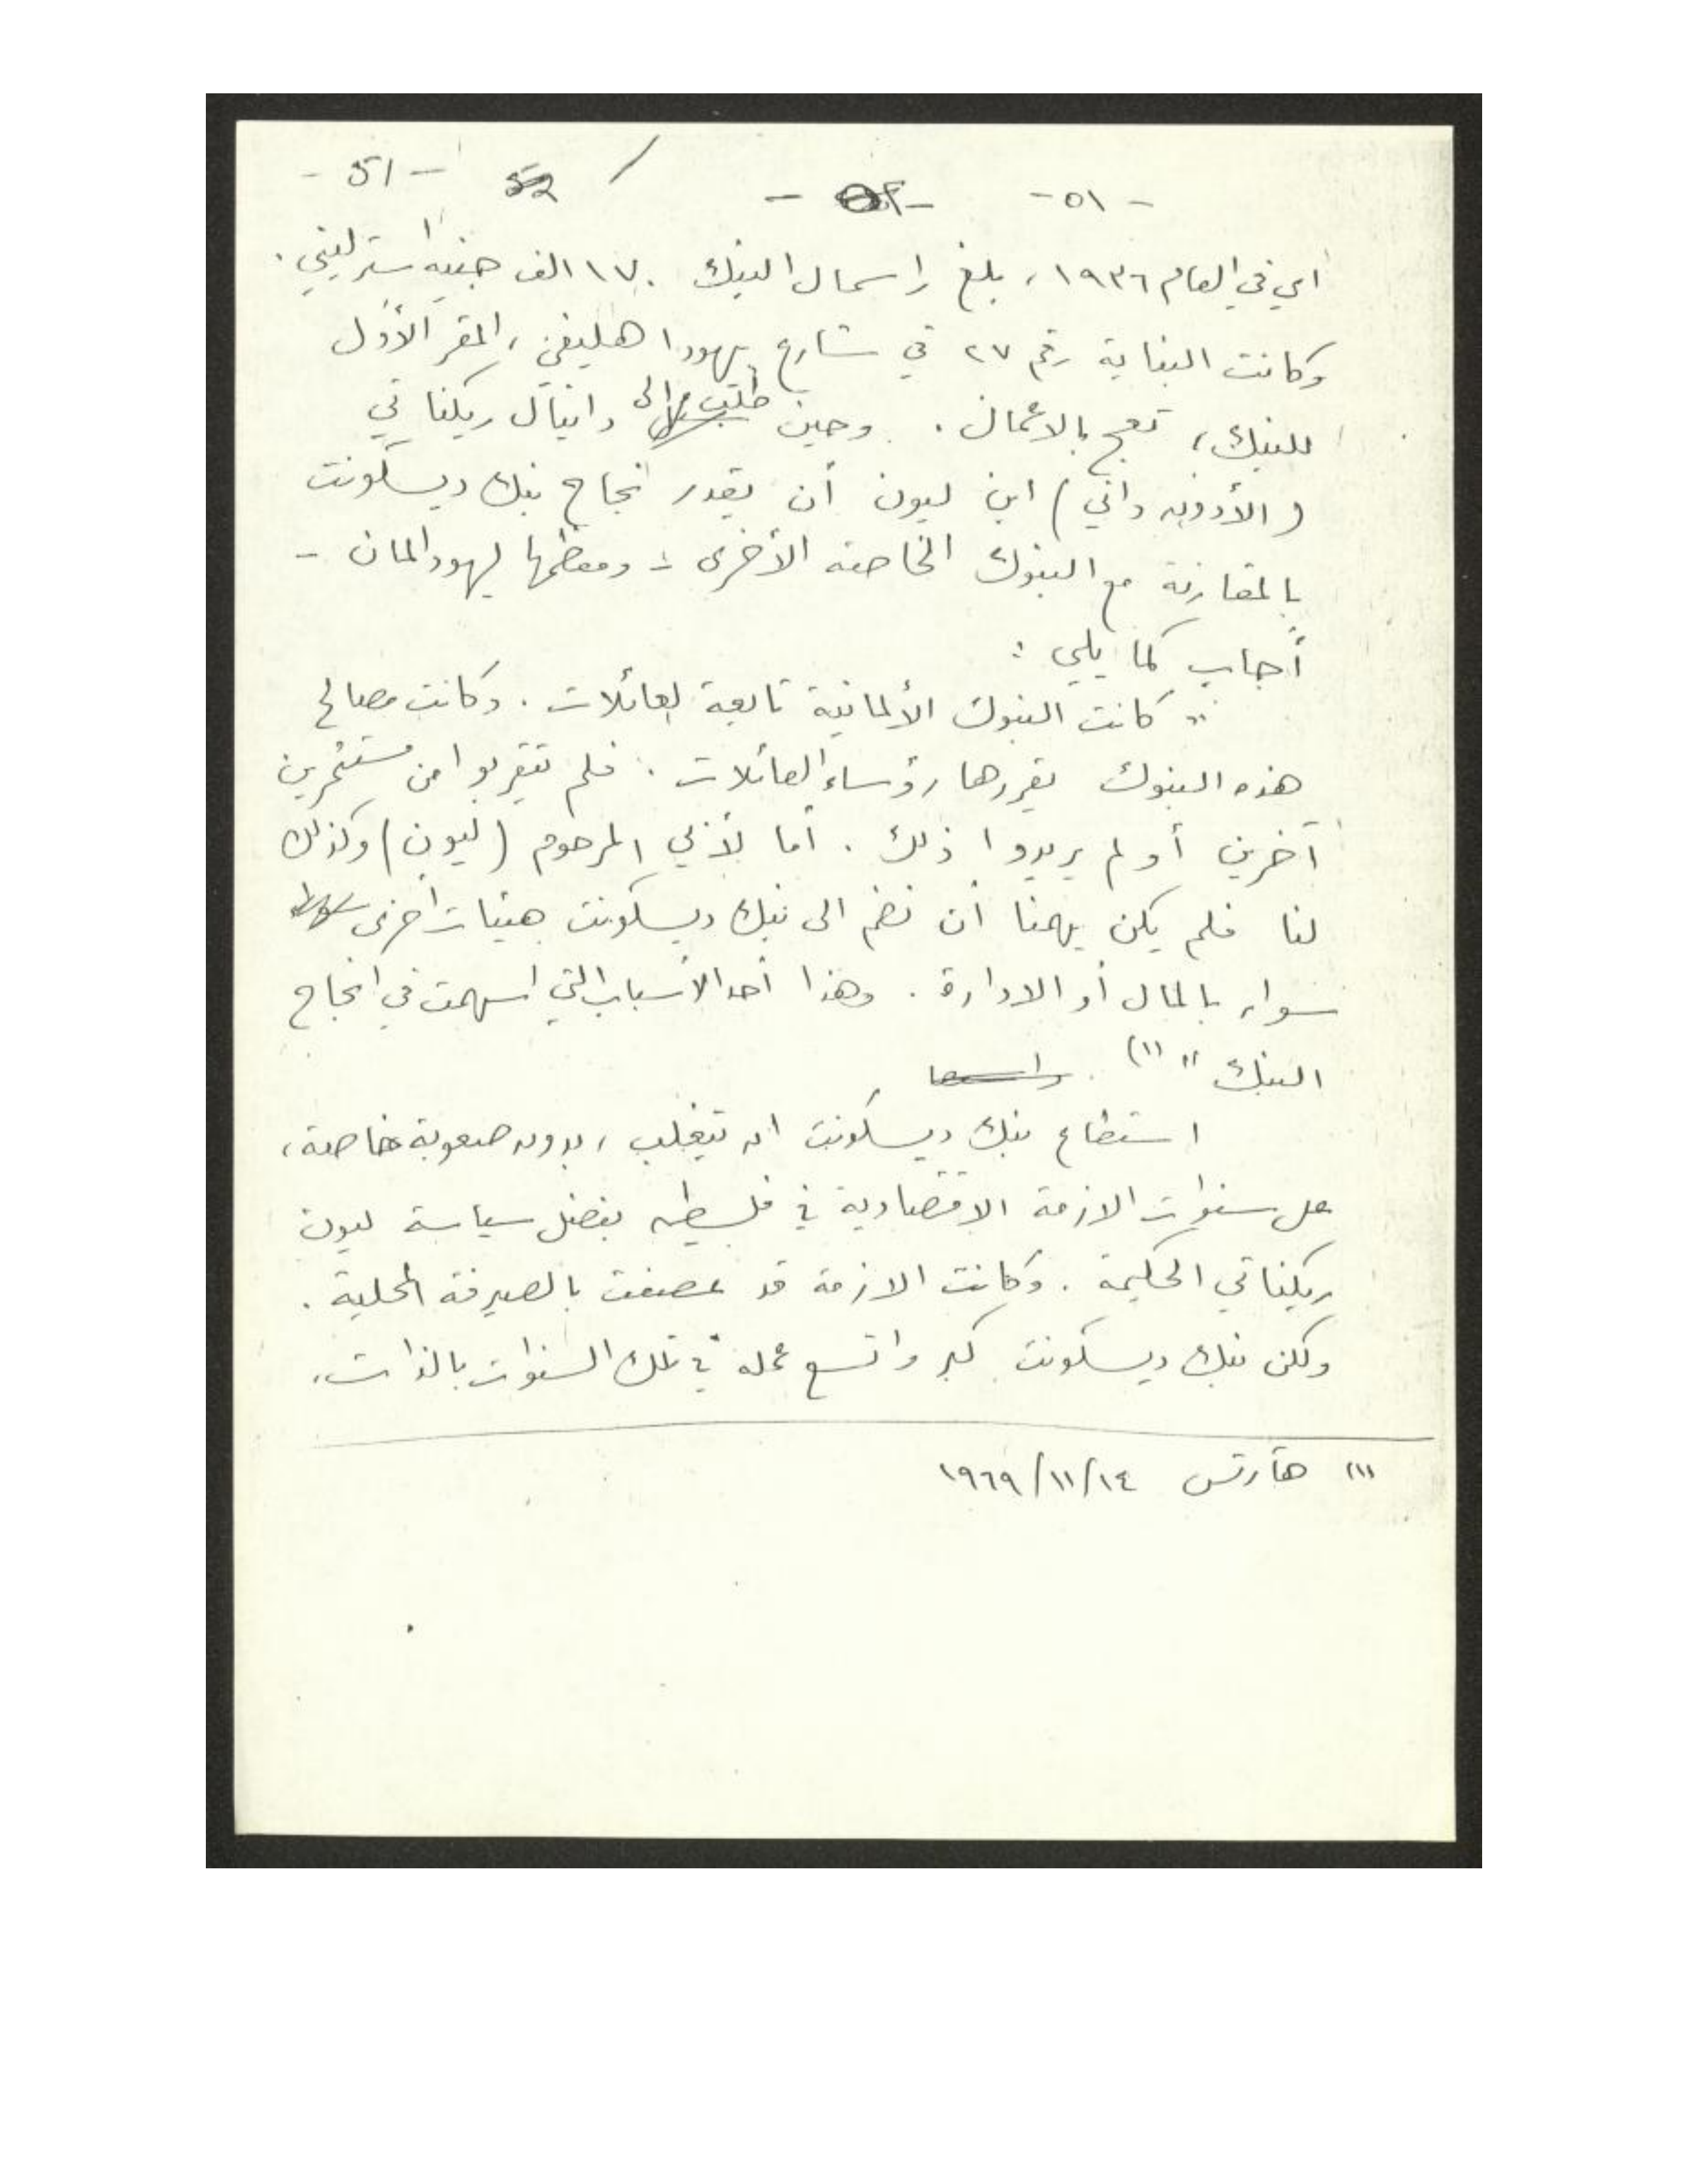 - ٥١ - - 51 -
اي في العام ١٩٣٦، بلغ راسمال البنك ١٧٠ الف جنيه استرليني.
وكانت البناية رقم ٢٧ في شارع يهودا هليفي، المقر الأول
للبنك، تعج بالاعمال. وحين طلب الى دانيال ريكناتي
(الأدون داني) ابن ليون أن يقدر نجاح بنك ديسكونت
بالمقارنة مع البنوك الخاصة الأخرى - ومعظمها ليهود المان -
أجاب كما يلي:
" كانت البنوك الألمانية تابعة لعائلات. وكانت مصالح
هذه البنوك يقررها رؤساء العائلات. فلم يتقربوا من مستثمرين
آخرين أو لم يريدوا ذلك. أما لأبي المرحوم (ليون) وكذلك
لنا فلم يكن يهمنا أن نضم الى بنك ديسكونت هيئات أخرى
سواء بالمال أو الادارة. وهذا أحد الأسباب التي اسهمت في انجاح
البنك " (١).
استطاع بنك ديسكونت ان يتغلب، بدون صعوبة خاصة،
على سنوات الازمة الاقتصادية في فلسطين بفضل سياسة ليون
ريكناتي الحكيمة. وكانت الازمة قد عصفت بالصيرفة المحلية.
ولكن بنك ديسكونت كبر واتسع عمله في تلك السنوات بالذات.
(١) هآرتس ١٤/١١/١٩٦٩